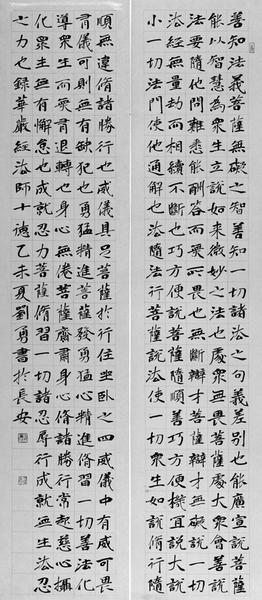 善知法義菩薩無礙之智善知一切諸法之句義差別也能廣宣說菩薩
能以智慧為眾生宣說如來微妙之法也處眾無畏菩薩處大眾會善說
法要隨他問難悉能酬答而無所畏也無斷辯才菩薩辯才無礙說一切
法經無量劫而相續不斷也巧方便說菩薩隨順善巧方便機宜說大說
小一切法門使他通解也法隨法行菩薩說法使一切眾生如說脩行隨
順無違脩諸勝行也威儀具足菩薩於行住坐臥之四威儀中有威可畏
有儀可則無有缺犯也勇猛精進菩薩發勇猛心精進脩習一切善法化
導眾生而無退轉也身心無倦菩薩齋肅身心脩諸勝行常起慈心攝
化眾生無有懈怠也成就忍力菩薩脩習一切諸忍辱行成就無生法忍
之力也錄華嚴經法師十德乙未夏劉勇書於長安